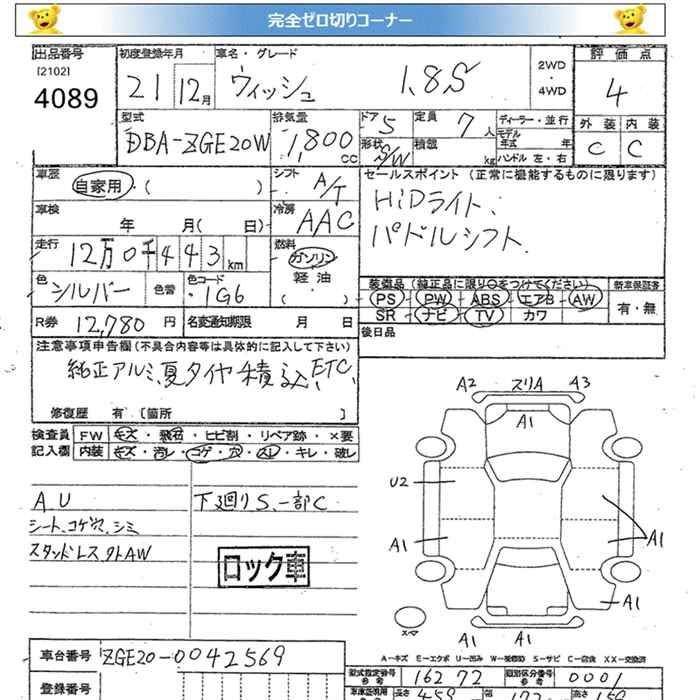 完全ゼロ切りコーナー
出品番号 初度登録年月 車名・グレード 2WD・4WD 評価点
[2102]
4089 21 12月 ウィッシュ 1.8S 4
型式 排気量 ドア 定員 ディーラー・並行 外装 内装
DBA-ZGE20W 1,800 CC 5 7人 モデル年式 年 C C
形状 S/W 積載 kg ハンドル 左・右
車歴 自家用・( ) シフト A/T セールスポイント (正常に機能するものに限ります)
車検 年 月( 日) 冷房 AAC HiDライト、
パドルシフト
走行 12万0千443km 燃料 ガソリン 軽油 ( )
色 シルバー 色替 色コード 1G6 装備品(純正品に限り○をつけてください) 新車保証書
PS PW ABS エアB AW 有・無
R券 12,780円 名変通知期限 月 日 SR ナビ TV カワ
後日品
注意事項申告欄(不具合内容等は具体的に記入して下さい)
純正アルミ、夏タイヤ積込、ETC
修復歴 有 [箇所 ]
検査員 FW キズ・飛石・ヒビ割・リペア跡・×要
記入欄 内装 キズ・汚レ・コゲ・穴・スレ・キレ・破レ
A2 スリA A3
A1
U2
A1 A1
A1
A1 A1
スマ
A,U 下廻りS、一部C
シート、コゲ穴、シミ
スタッドレス、外AW
ロック車
車台番号 ZGE20-0042569
A-キズ E-エクボ U-凹み W-板修跡 S-サビ C-腐食 XX-交換済
型式指定番号 16272 類別区分番号 0001
登録番号 長さ 459 幅